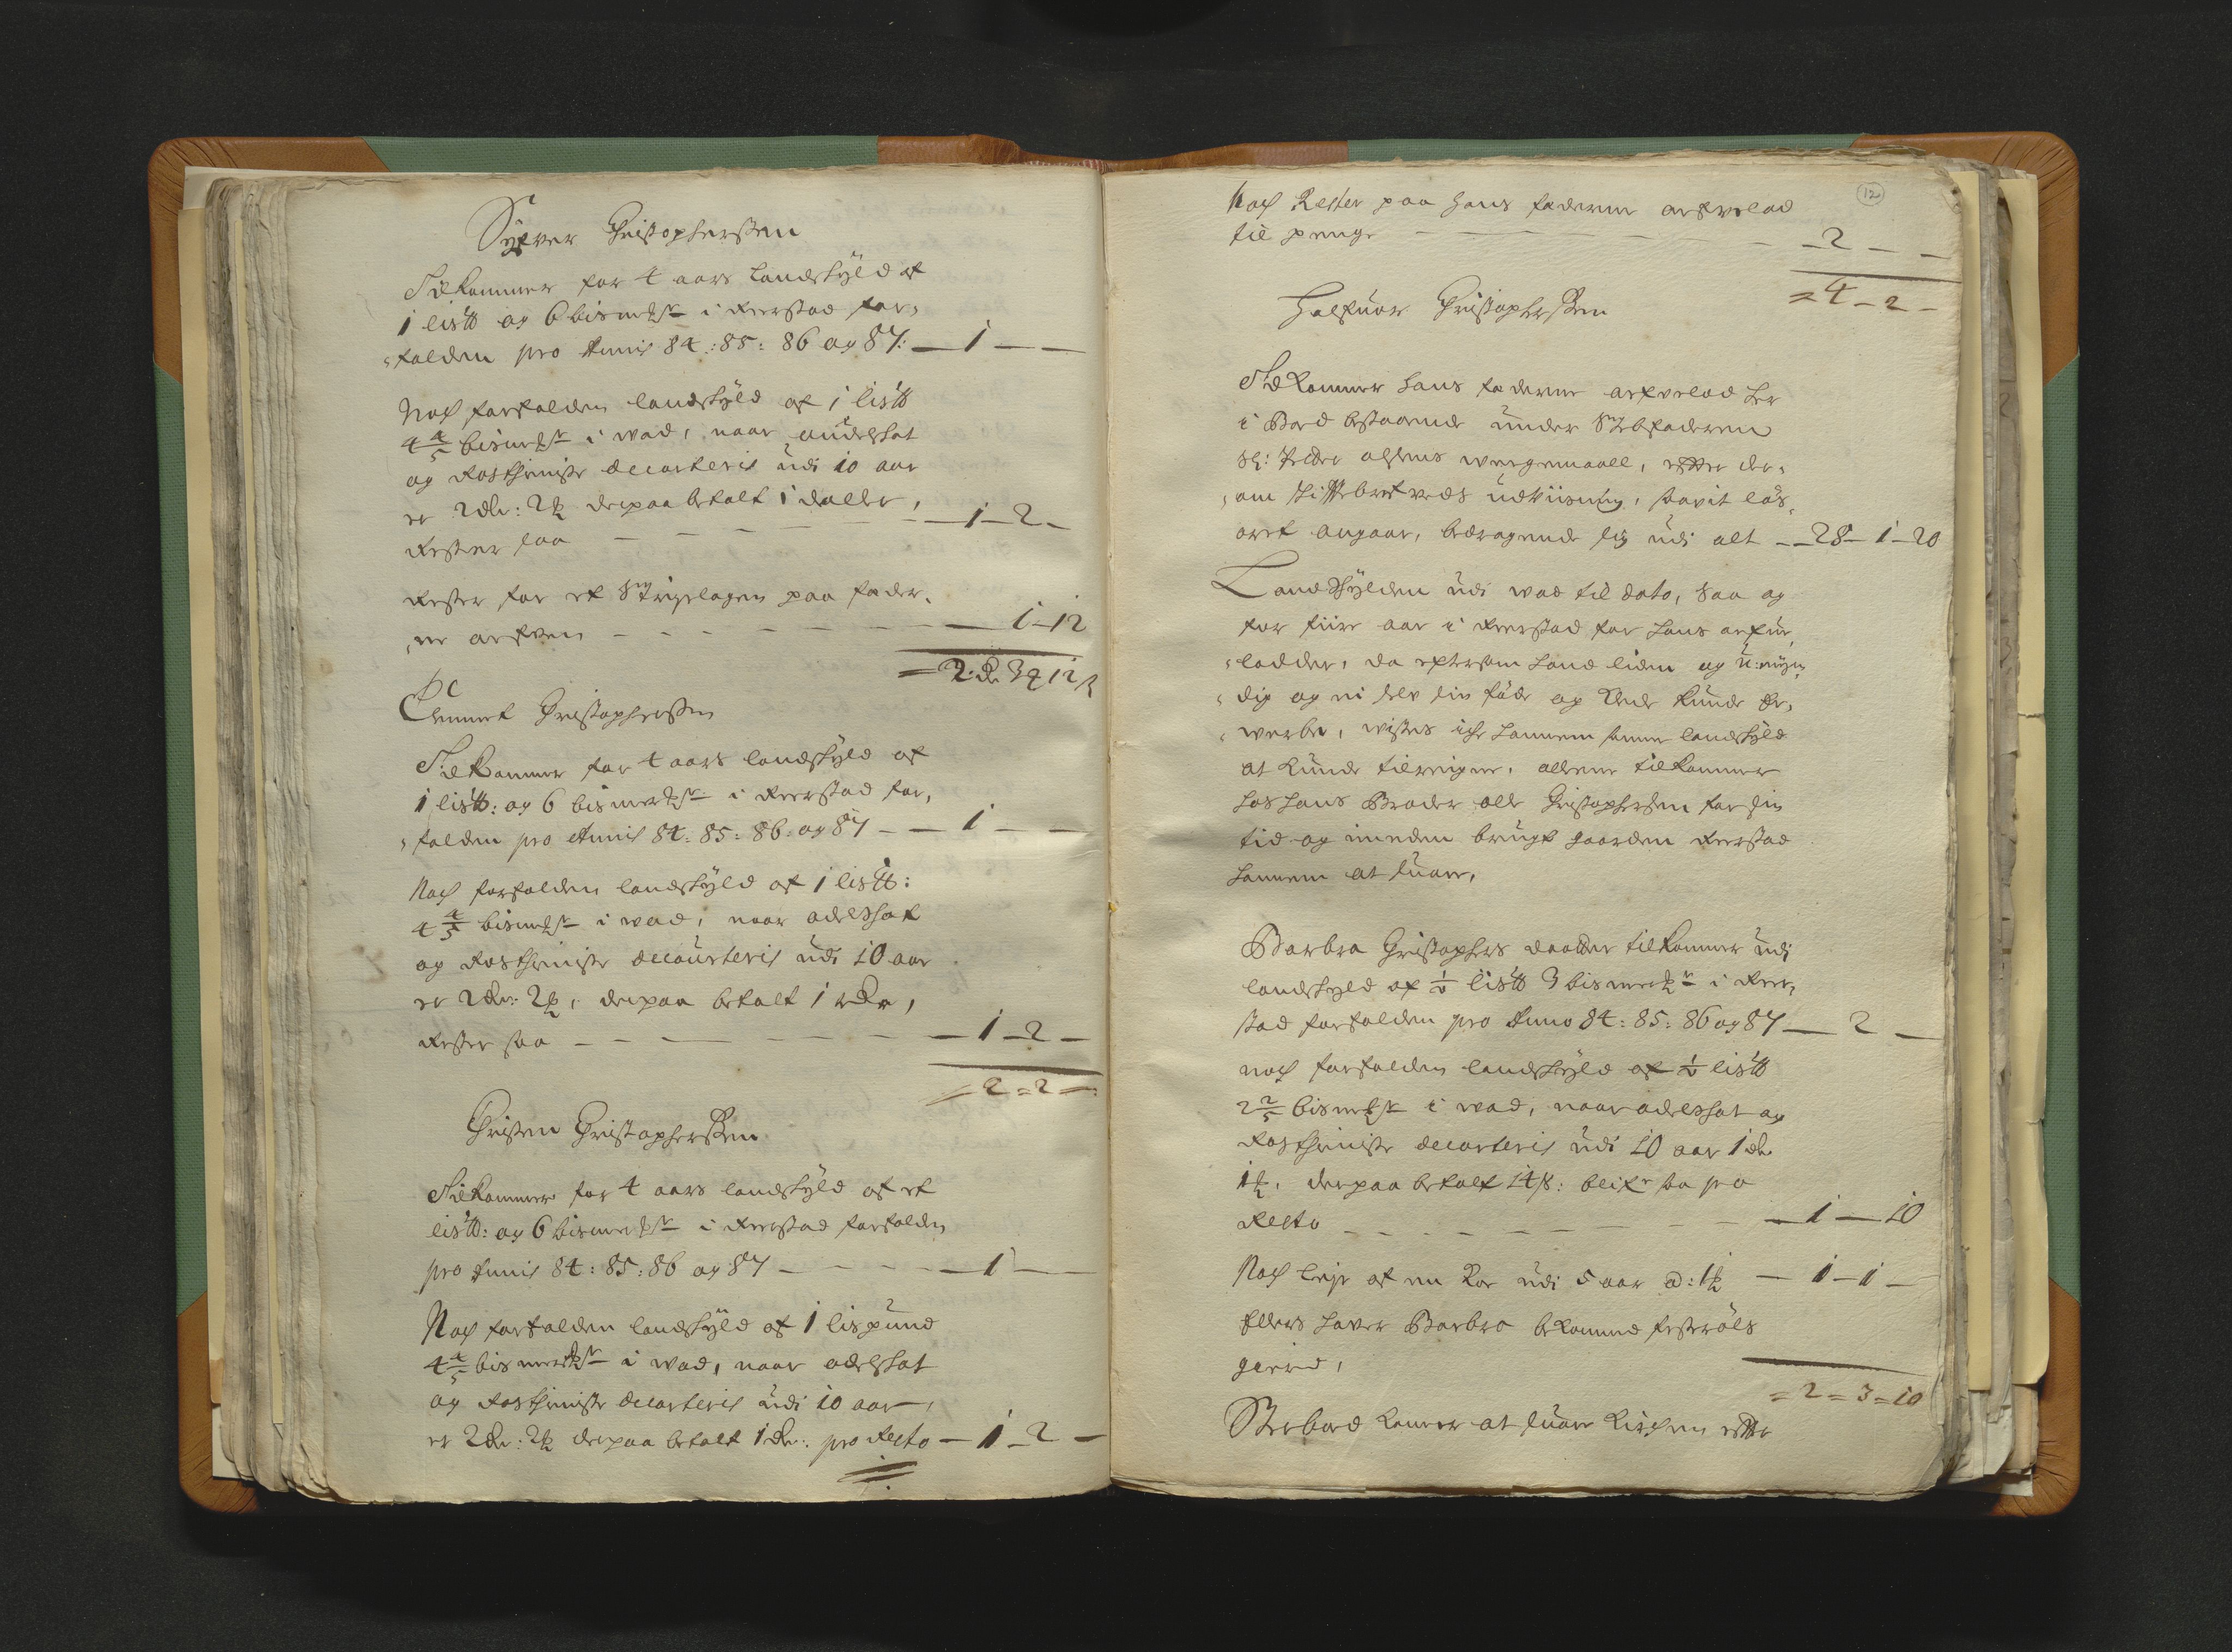 Syfver Christophersen
Tilkommer for 4 aars Landskyld af
1 lis℔ og 6 bismrk i Reerstad for,
falden pro Annis 84: 85: 86 og 87: — 1 — —
Noch forfalden landskyld af 1 lis℔
4 4/5 bismrk i wad, naar audelhat
og Rosthieniste decorteris udi 10 aar
er 2 dr: 2½ derpaa betalt 1 daller,
Rester saa — — — — 1 — 2 —
Rester for et paa fader,
ne arfven — — — — 1 — 12
= 2 dr 3 ₰ 12 ß
Clemmet Christophersen
Tilkommer for 4 aars landskyld af
1 lis℔: og 6 bismerk i Reerstad for,
falden pro Annis 84: 85: 86: og 87 — — 1 — —
Noch forfalden landskyld af 1 lis℔:
4 4/5 bismrk i wad, naar adelhat
og Rosthieniste decourteris udi 10 aar
er 2 dr: 2½, derpaa betalt 1 rdr,
Rester saa — — — — — 1 — 2 —
= 2 = 2 =
Christen Christophersen
Tilkommer for 4 aars landskyld af et
lis℔: og 6 bismerk i Reerstad forfalden
pro Annis 84: 85: 86 og 87 — — — 1 — —
Noch forfalden landskyld af 1 lispund
4 4/5 bismerk i wad, naar adelhat
og Rosthieniste decorteris udi 10 aar,
er 2 dr: 2½ derpaa betalt 1 dr: pro Resto — 1 — 2 —
12
Noch Rester paa hans faderne arfvelod
til penge — — — — 2 — —
= 4 — 2 —
Halfuor Christophersen
Tilkommer hans faderne arfvelod her
i Boed bestaaende under Stedfaderen
Sl: Peder Olsens wergemaall, effter der,
om Skiftebrefveds udviisning, saavit løs,
øret angaar, bedragende sig udi alt — 28 — 1 — 20
Landskylden udi wad til dato, saa og
for fiire aar i Reerstad for hans arfue,
lodder, da eftersom hand liden og u: myn,
dig og ei self sin føde og klede kunde for,
werbe, wistes iche hannem samme landskyld
at kunde tileigne, allene tilkommer
hos hans Broder Olle Christophersen for sin
tid og imeden brugt gaarden Reerstad
hannem at suare,
Barbra Christophers daatter tilkommer udi
landskyld af ½ lis℔ 3 bismerk i Reer,
stad forfalden pro Anno 84: 85: 86 og 87 — 2 —
noch forfalden landskyld af ½ lis℔
2 2/5 bismrk i wad, naar adelhat og
Rosthieniste decorteris udi 10 aar 1 dr
1½, derpaa betalt 14 ß: blifr saa pro
Resto — — — — — 1 — 10
Noch leje af en Koe udi 5 aar a: 1½ — 1 — 1 —
Ellers hafver Barbra bekommed festerøls
gierd,
= 2 = 3 = 10
Sterboed kommer at suare Kirchen effter